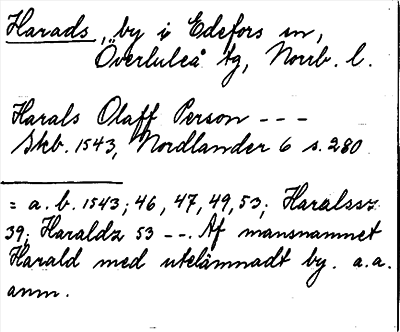 Harads, by i Edefors sn,
Överluleå tg, Norrb. l.
Harals Olaff Person - - -
Skb. 1543, Nordlander 6 s. 280
= a. b. 1543; 46, 47, 49, 53; Haralssz
39; Haraldz 53 - -. Af mansnamnet
Harald med utelämnadt by. a. a.
anm.